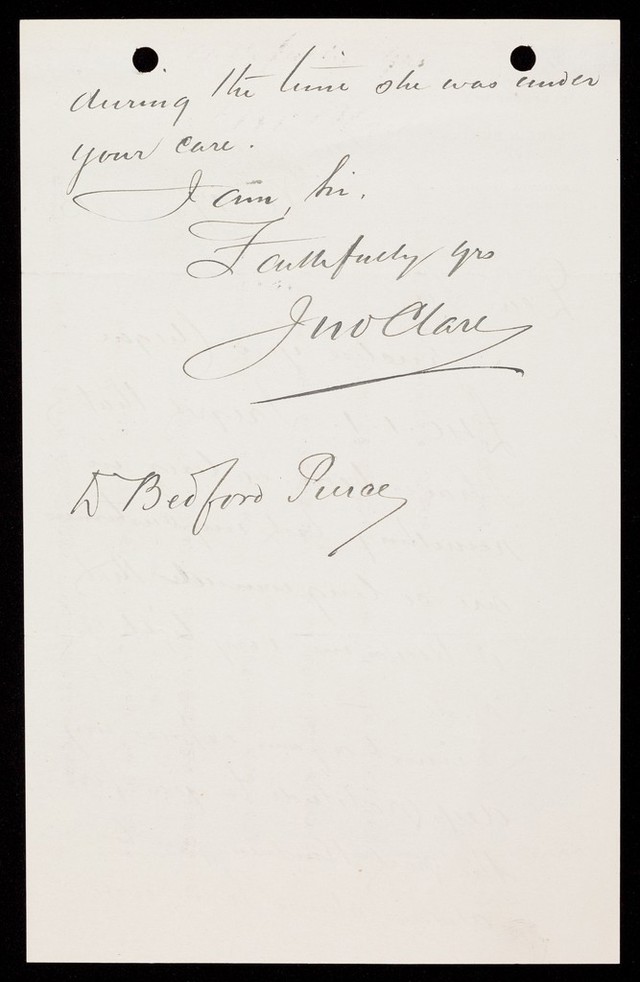 during the time she was under
your care.
I am, Sir,
Faithfully yrs
Jno Clare
Dr Bedford Pierce